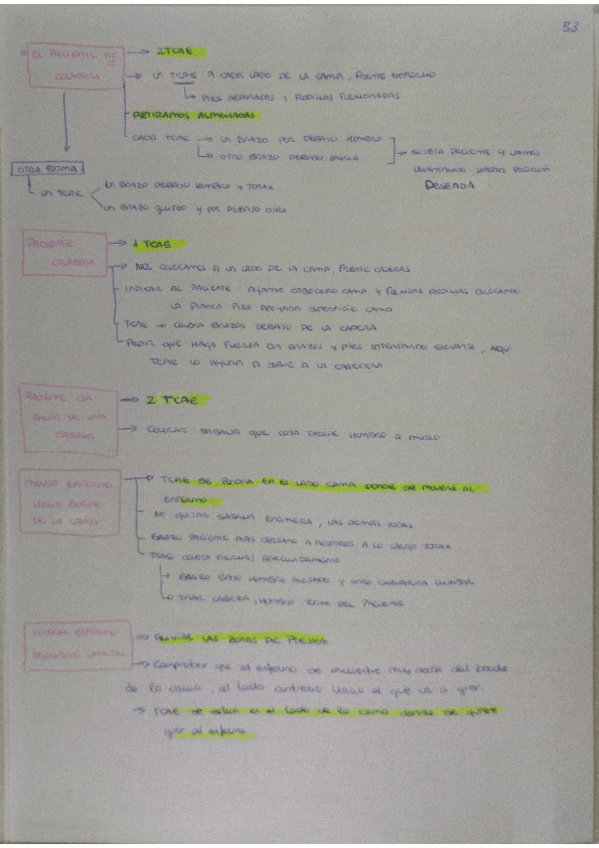 53
EL PACIENTE NO COLABORA
→ 2 TCAE
→ UN TCAE A CADA LADO DE LA CAMA, FRENTE ENFERMO
↳ PIES SEPARADOS Y RODILLAS FLEXIONADAS
RETIRAMOS ALMOHADAS
CADA TCAE → UN BRAZO POR DEBAJO HOMBRO
→ OTRO BRAZO DEBAJO MUSLO
→ SUJETA PACIENTE Y VAMOS
LEVANTANDO HASTA POSICIÓN
DESEADA
OTRA FORMA
UN TCAE
UN BRAZO DEBAJO HOMBRO Y TORAX
UN BRAZO GLUTEO Y POR DEBAJO
PACIENTE COLABORA
→ 1 TCAE
→ NOS COLOCAMOS A UN LADO DE LA CAMA, FRENTE CADERAS
INDICAR AL PACIENTE: AGARRE CABECERO CAMA Y FLEXIONE RODILLAS COLOCANDO
LA PLANTA PIES APOYADA SUPERFICIE CAMA
TCAE → COLOCA BRAZOS DEBAJO DE LA CADERA
PEDIR QUE HAGA FUERZA CON BRAZOS Y PIES INTENTANDO ELEVARSE, AQUI
TCAE LO AYUDA A SUBIR A LA CABECERA
PACIENTE CON AYUDA DE UNA SABANA
→ 2 TCAE
→ COLOCAR SABANA QUE COJA DESDE HOMBRO A MUSLO
MOVER ENFERMO HACIA BORDE DE LA CAMA
→ TCAE SE PONDRA EN EL LADO CAMA DONDE SE MOVERÁ AL
ENFERMO
NO QUITAR SABANA ENCIMERA, LAS DEMÁS TODAS
BRAZO PACIENTE MÁS CERCANO A NOSOTROS A LO LARGO TORAX
TCAE COLOCA PIERNAS ADECUADAMENTE
→ BRAZO BAJO HOMBRO ALEJADO Y OTRO CURVATURA LUMBAR
→ TIRAR CADERA, HOMBRO TORAX DEL PACIENTE
COLOCAR ENFERMO DECUBITO LATERAL
→ ALIVIAR LAS ZONAS DE PRESIÓN
→ Comprobar que el enfermo se encuentre muy cerca del borde
de la cama, al lado contrario hacia el que va a girar.
→ TCAE se coloca en el lado de la cama donde se quiere
girar al enfermo